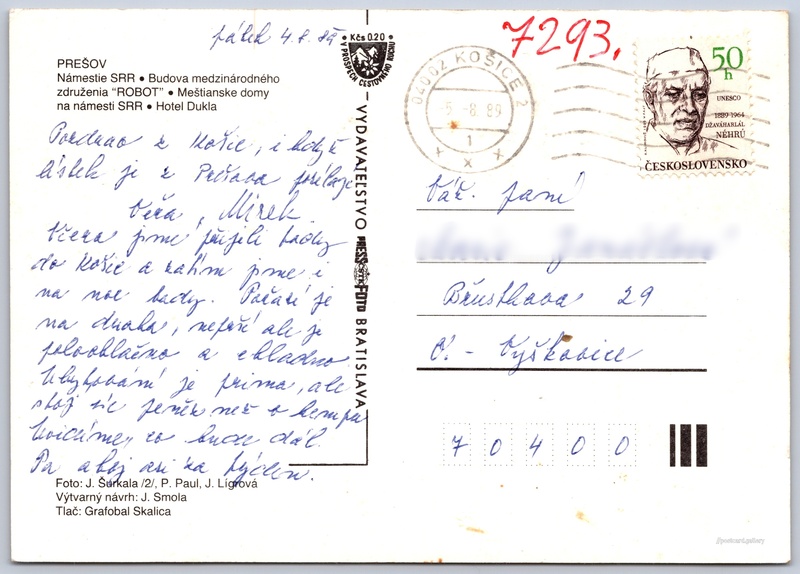 pátek 4.8.89
Kčs 0.20
V PROSPECH CESTOVNÉHO RUCHU
PREŠOV
Námestie SRR • Budova medzinárodného
združenia “ROBOT” • Meštianske domy
na námestí SRR • Hotel Dukla
Pozdrav z Košic, i když
lístek je z Prešova posílají
Věra, Mirek.
Včera jsme přijeli tady
do Košic a zatím jsme i
na noc tady. Počasí je
na draka, neprší ale je
polooblačno a chladno
Ubytování je prima, ale
stojí víc peněz než v kempu
Uvidíme, co bude dál.
Pa ahoj asi za týden.
Foto: J. Šurkala /2/, P. Paul, J. Lígrová
Výtvarný návrh: J. Smola
Tlač: Grafobal Skalica
VYDAVATEĽSTVO PRESSFOTO BRATISLAVA
7293.
04002 KOŠICE 2
-5.-8.89
1
x x x
50
h
UNESCO
1889-1964
DŽAVÁHARLÁL
NÉHRÚ
ČESKOSLOVENSKO
Váž. paní
29
O. - Výškovice
70400